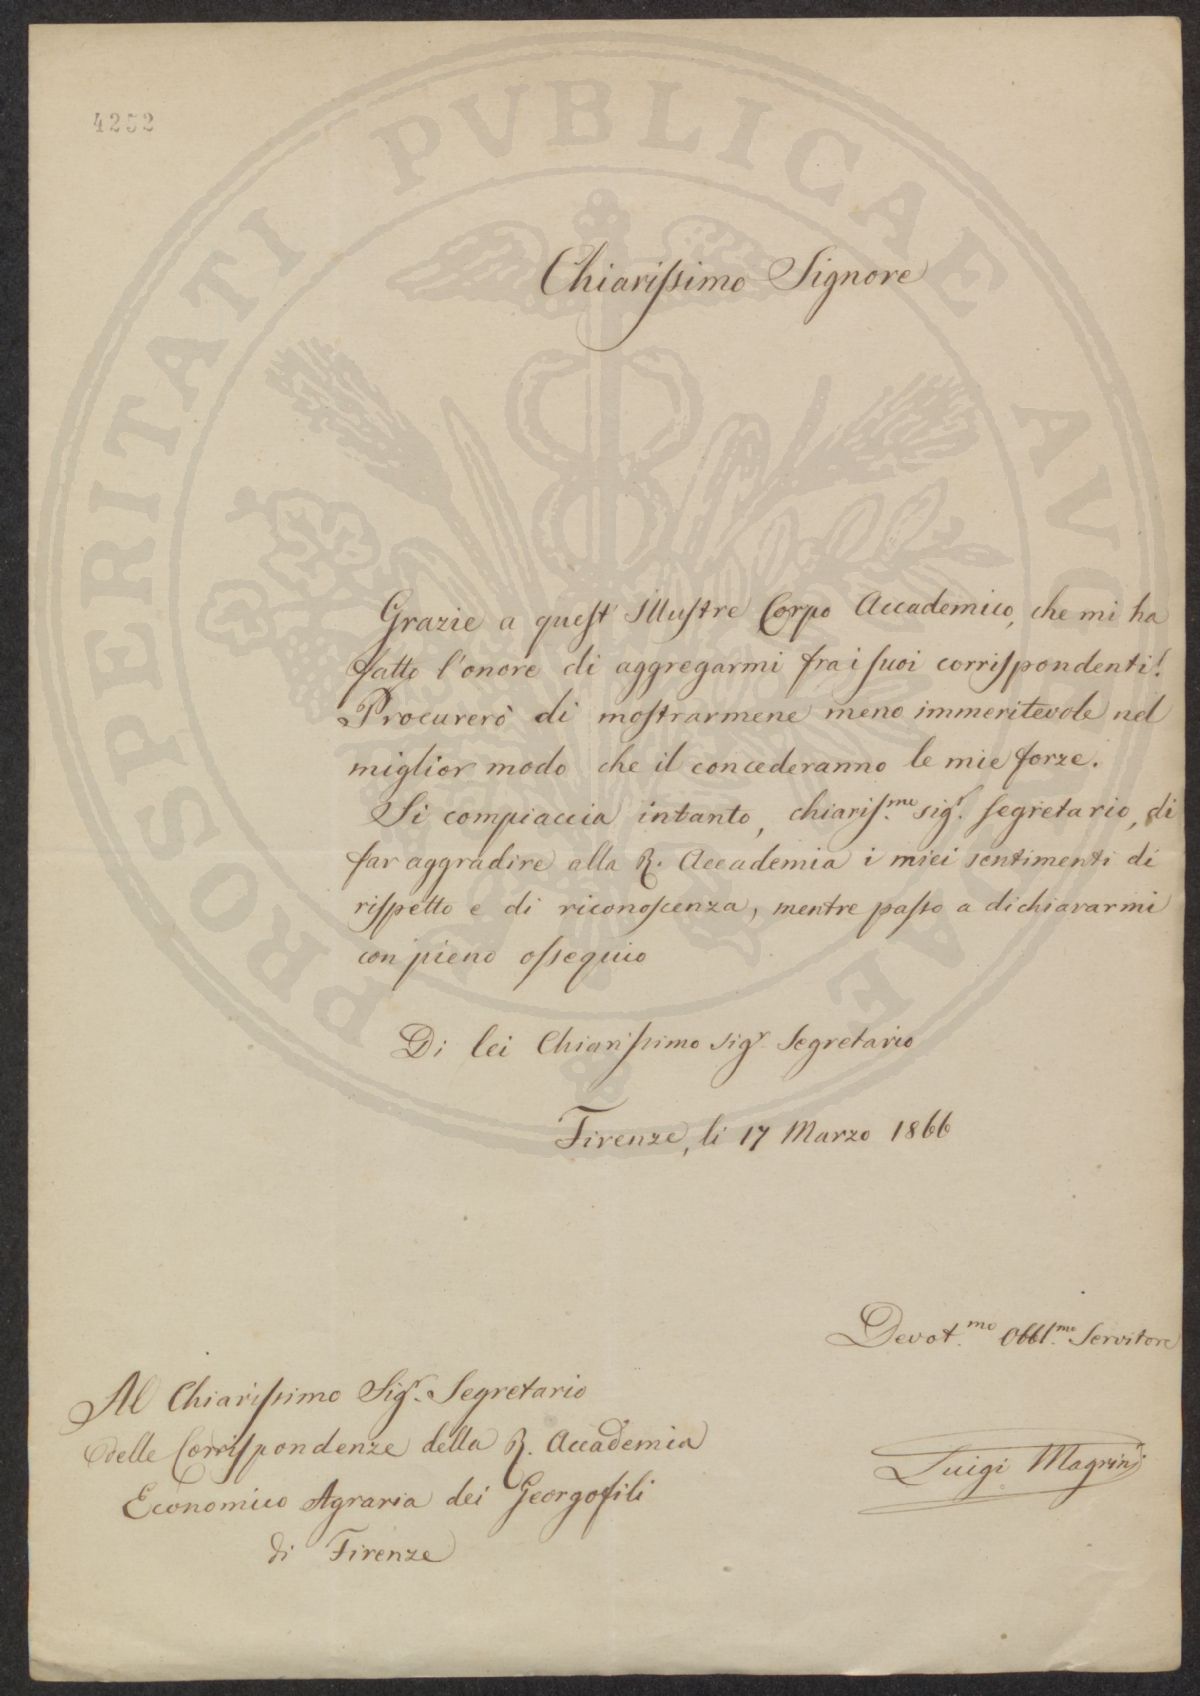 4252
PROSPERITATI PVBLICAE AVGENDAE
Chiarissimo Signore
Grazie a quest' Illustre Corpo Accademico, che mi ha
fatto l'onore di aggregarmi fra i suoi corrispondenti!
Procurerò di mostrarmene meno immeritevole nel
miglior modo che il concederanno le mie forze.
Si compiaccia intanto, chiaris.mo sigr. segretario, di
far aggradire alla R. Accademia i miei sentimenti di
rispetto e di riconoscenza, mentre passo a dichiararmi
con pieno ossequio
Di lei Chiarissimo sigr. Segretario
Firenze, li 17 Marzo 1866
Devot.mo Obbl.mo Servitore
Luigi Magrini
Al Chiarissimo Sigr. Segretario
delle Corrispondenze della R. Accademia
Economico Agraria dei Georgofili
di Firenze